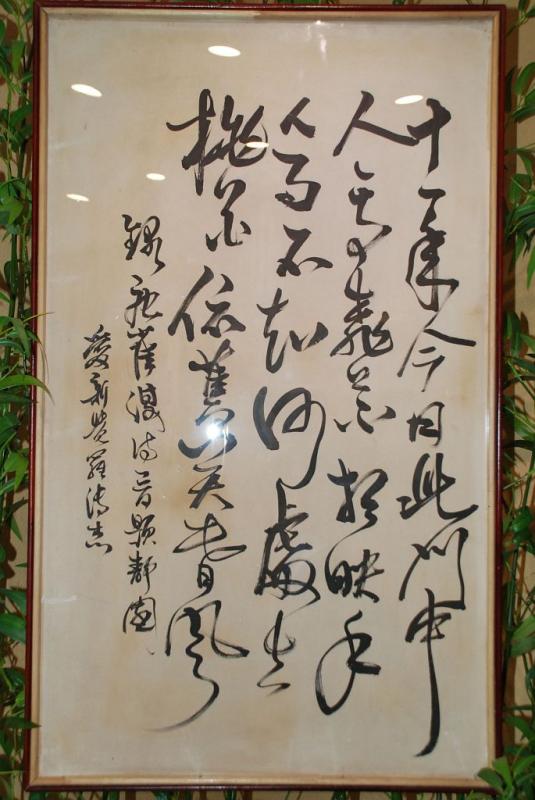 去年今日此門中
人面桃花相映紅
人面不知何處去
桃花依舊笑春風
錄崔護詩題靜園
愛新覺羅